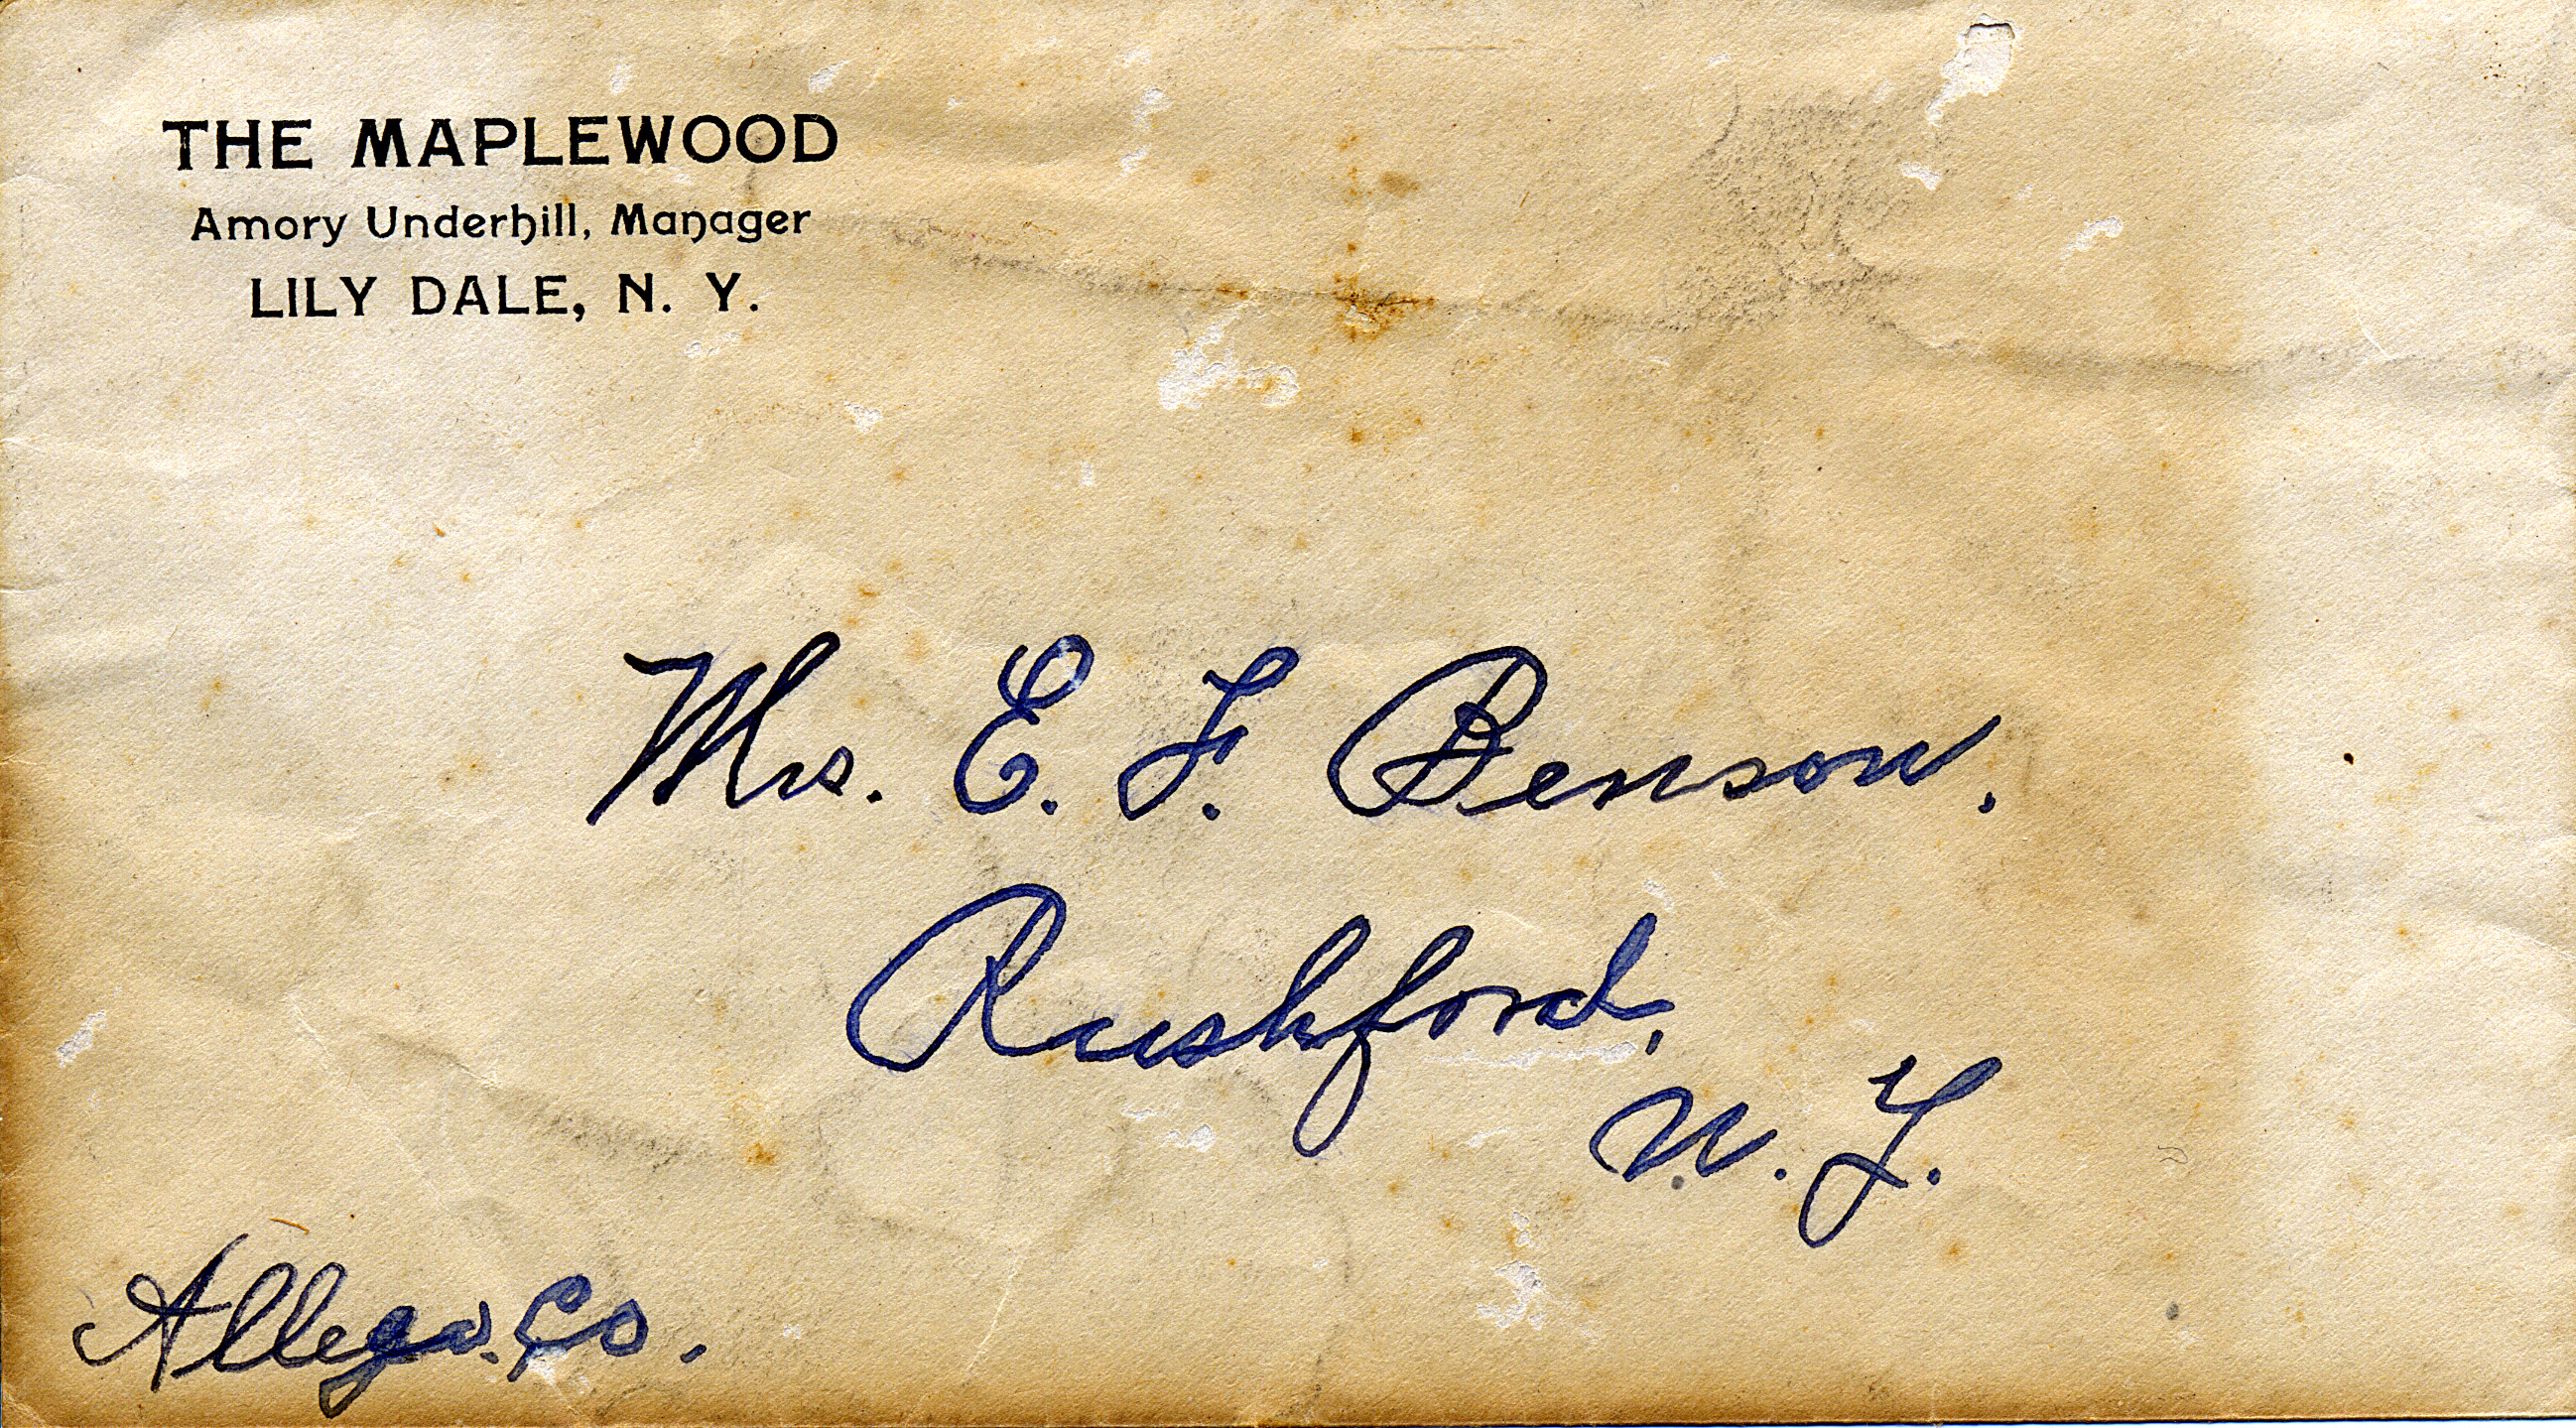 THE MAPLEWOOD
Amory Underhill, Manager
LILY DALE, N. Y.
Mrs. E. F. Benson.
Rushford,
N. Y.
Allega. Co.